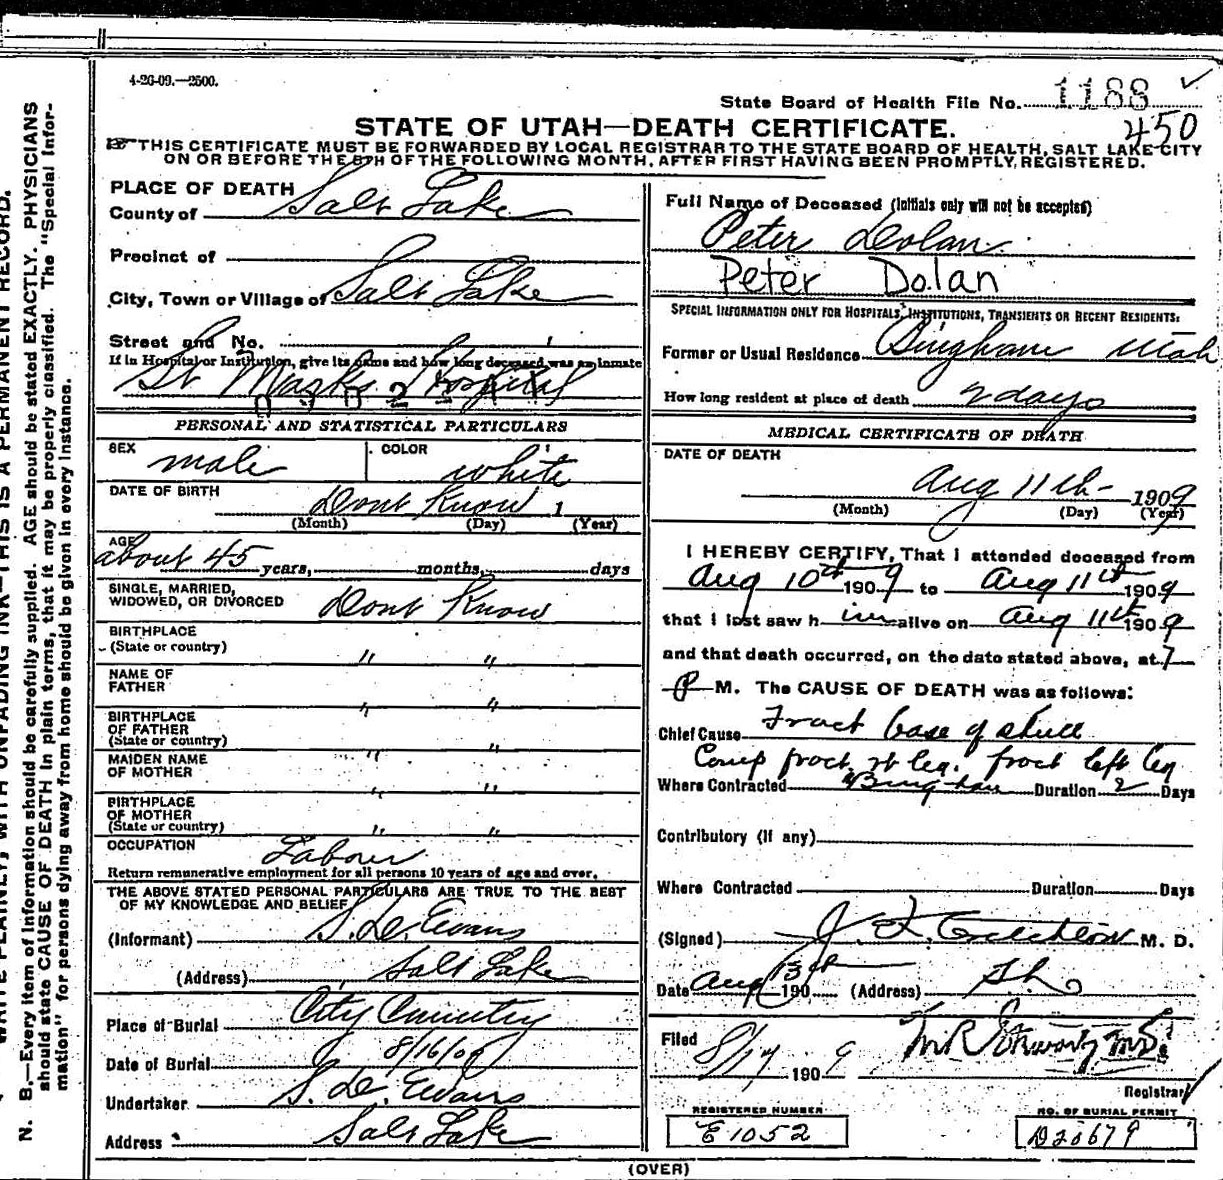 4-26-09.—2500.
State Board of Health File No. 1188
450
STATE OF UTAH—DEATH CERTIFICATE.
☞ THIS CERTIFICATE MUST BE FORWARDED BY LOCAL REGISTRAR TO THE STATE BOARD OF HEALTH, SALT LAKE CITY
ON OR BEFORE THE 5TH OF THE FOLLOWING MONTH, AFTER FIRST HAVING BEEN PROMPTLY REGISTERED.
PLACE OF DEATH
County of Salt Lake
Precinct of
City, Town or Village of Salt Lake
Street and No.
If in Hospital or Institution, give its name and how long deceased was an inmate
St Marks Hospital
PERSONAL AND STATISTICAL PARTICULARS
SEX male COLOR white
DATE OF BIRTH Dont Know 1
(Month) (Day) (Year)
AGE about 45 years, months, days
SINGLE, MARRIED,
WIDOWED, OR DIVORCED Dont Know
BIRTHPLACE
(State or country) " "
NAME OF
FATHER " "
BIRTHPLACE
OF FATHER
(State or country) " "
MAIDEN NAME
OF MOTHER " "
BIRTHPLACE
OF MOTHER
(State or country) " "
OCCUPATION Labour
Return remunerative employment for all persons 10 years of age and over.
THE ABOVE STATED PERSONAL PARTICULARS ARE TRUE TO THE BEST
OF MY KNOWLEDGE AND BELIEF
(Informant) S. D. Evans
(Address) Salt Lake
Place of Burial City Cemetery
Date of Burial 8/16/09
Undertaker S. D. Evans
Address Salt Lake
Full Name of Deceased (Initials only will not be accepted)
Peter Dolan
Peter Dolan
SPECIAL INFORMATION ONLY FOR HOSPITALS, INSTITUTIONS, TRANSIENTS OR RECENT RESIDENTS:
Former or Usual Residence Bingham Utah
How long resident at place of death 2 days
MEDICAL CERTIFICATE OF DEATH
DATE OF DEATH
Aug 11th 1909
(Month) (Day) (Year)
I HEREBY CERTIFY, That I attended deceased from
Aug 10th 1909 to Aug 11th 1909
that I last saw him alive on Aug 11th 1909
and that death occurred, on the date stated above, at 7
P M. The CAUSE OF DEATH was as follows:
Chief Cause Fract base of skull
Comp fract rt leg. fract left leg
Where Contracted Bingham Duration 2 Days
Contributory (if any)
Where Contracted Duration Days
(Signed) M. D.
Date Aug 13th 190 (Address) S L
Filed 8/17 1909
Registrar
REGISTERED NUMBER
E1052
NO. OF BURIAL PERMIT
D20679
(OVER)
WRITE PLAINLY, WITH UNFADING INK—THIS IS A PERMANENT RECORD.
N. B.—Every item of information should be carefully supplied. AGE should be stated EXACTLY. PHYSICIANS
should state CAUSE OF DEATH in plain terms, that it may be properly classified. The "Special Infor-
mation" for persons dying away from home should be given in every instance.